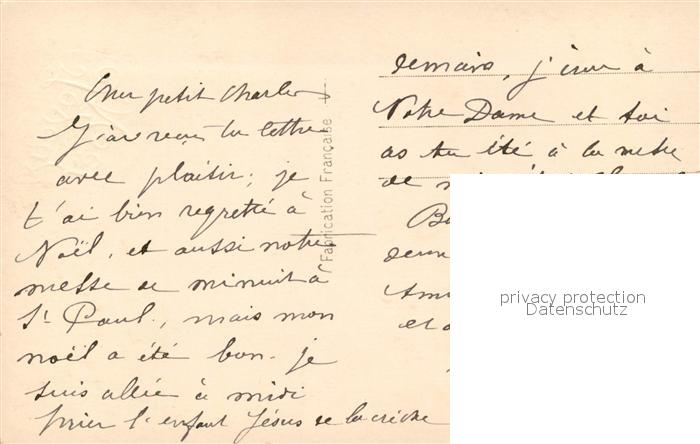 Cher petit Charles
J'ai reçu ta lettre
avec plaisir; je
t'ai bien regretté à
Noël, et aussi notre
messe de minuit à
St Paul, mais mon
noël a été bon. je
suis allée à midi
prier l'enfant Jésus de la crèche
demain, j'irai à
Notre Dame et toi
as tu été à la messe
de
et
Fabrication Française
privacy protection
Datenschutz